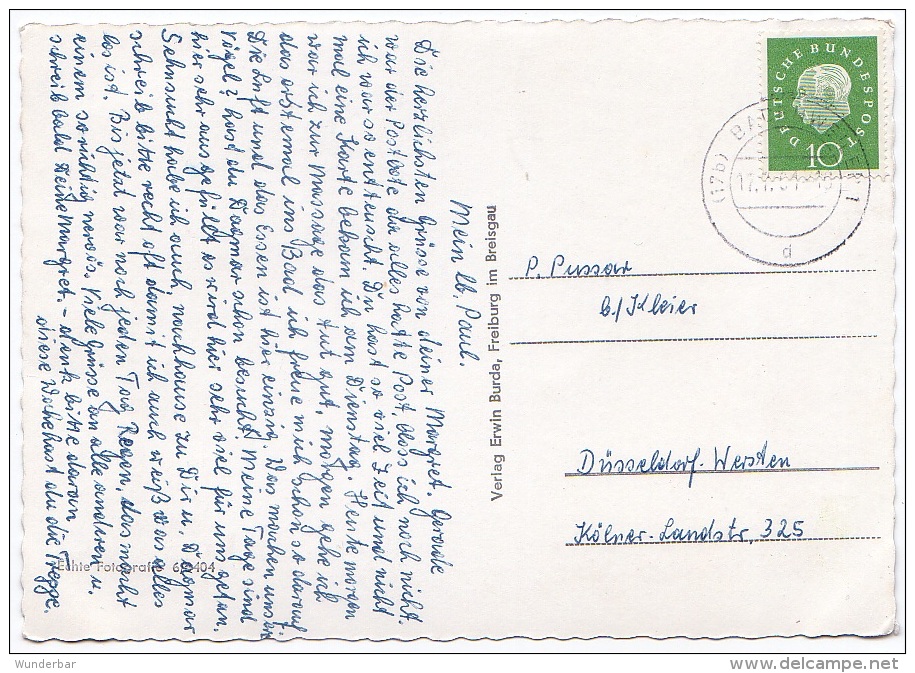 Mein lb. Paul.
Die herzlichsten Grüsse von deiner Margret. Gerade
war der Postbote da alles hatte Post, dass ich noch nicht.
ich war so enttäuscht. Du hast so viel Zeit und nicht
mal eine Karte bekam ich am Dienstag. Heute morgen
war ich zur Massage das tut gut, morgen gehe ich
das erstemal ins Bad ich freue mich schon so darauf
Die Luft und das Essen ist hier einzig. Was machen unsere
Vögel? hast du Dagmar schon besucht. Meine Tage sind
hier sehr ausgefüllt es wird hier sehr viel für uns getan.
Sehnsucht habe ich auch, nachhause zu Dir u. Dagmar
schreib bitte recht oft damit ich auch weiß was alles
los ist. Bis jetzt war noch jeden Tag Regen, das macht
einem so richtig nervös. Viele Grüsse an alle andren u.
schreib bald Deine Margret. - denk bitte daran
diese Woche hast du die Treppe.
Echte Fotografie 404
Verlag Erwin Burda, Freiburg im Breisgau
DEUTSCHE BUNDESPOST
10
(17b) BAD
17. 61
d
P. Pussar
b/Kleier
Düsseldorf-Wersten
Kölner-Landstr, 325
Wunderbar
www.delcampe.net